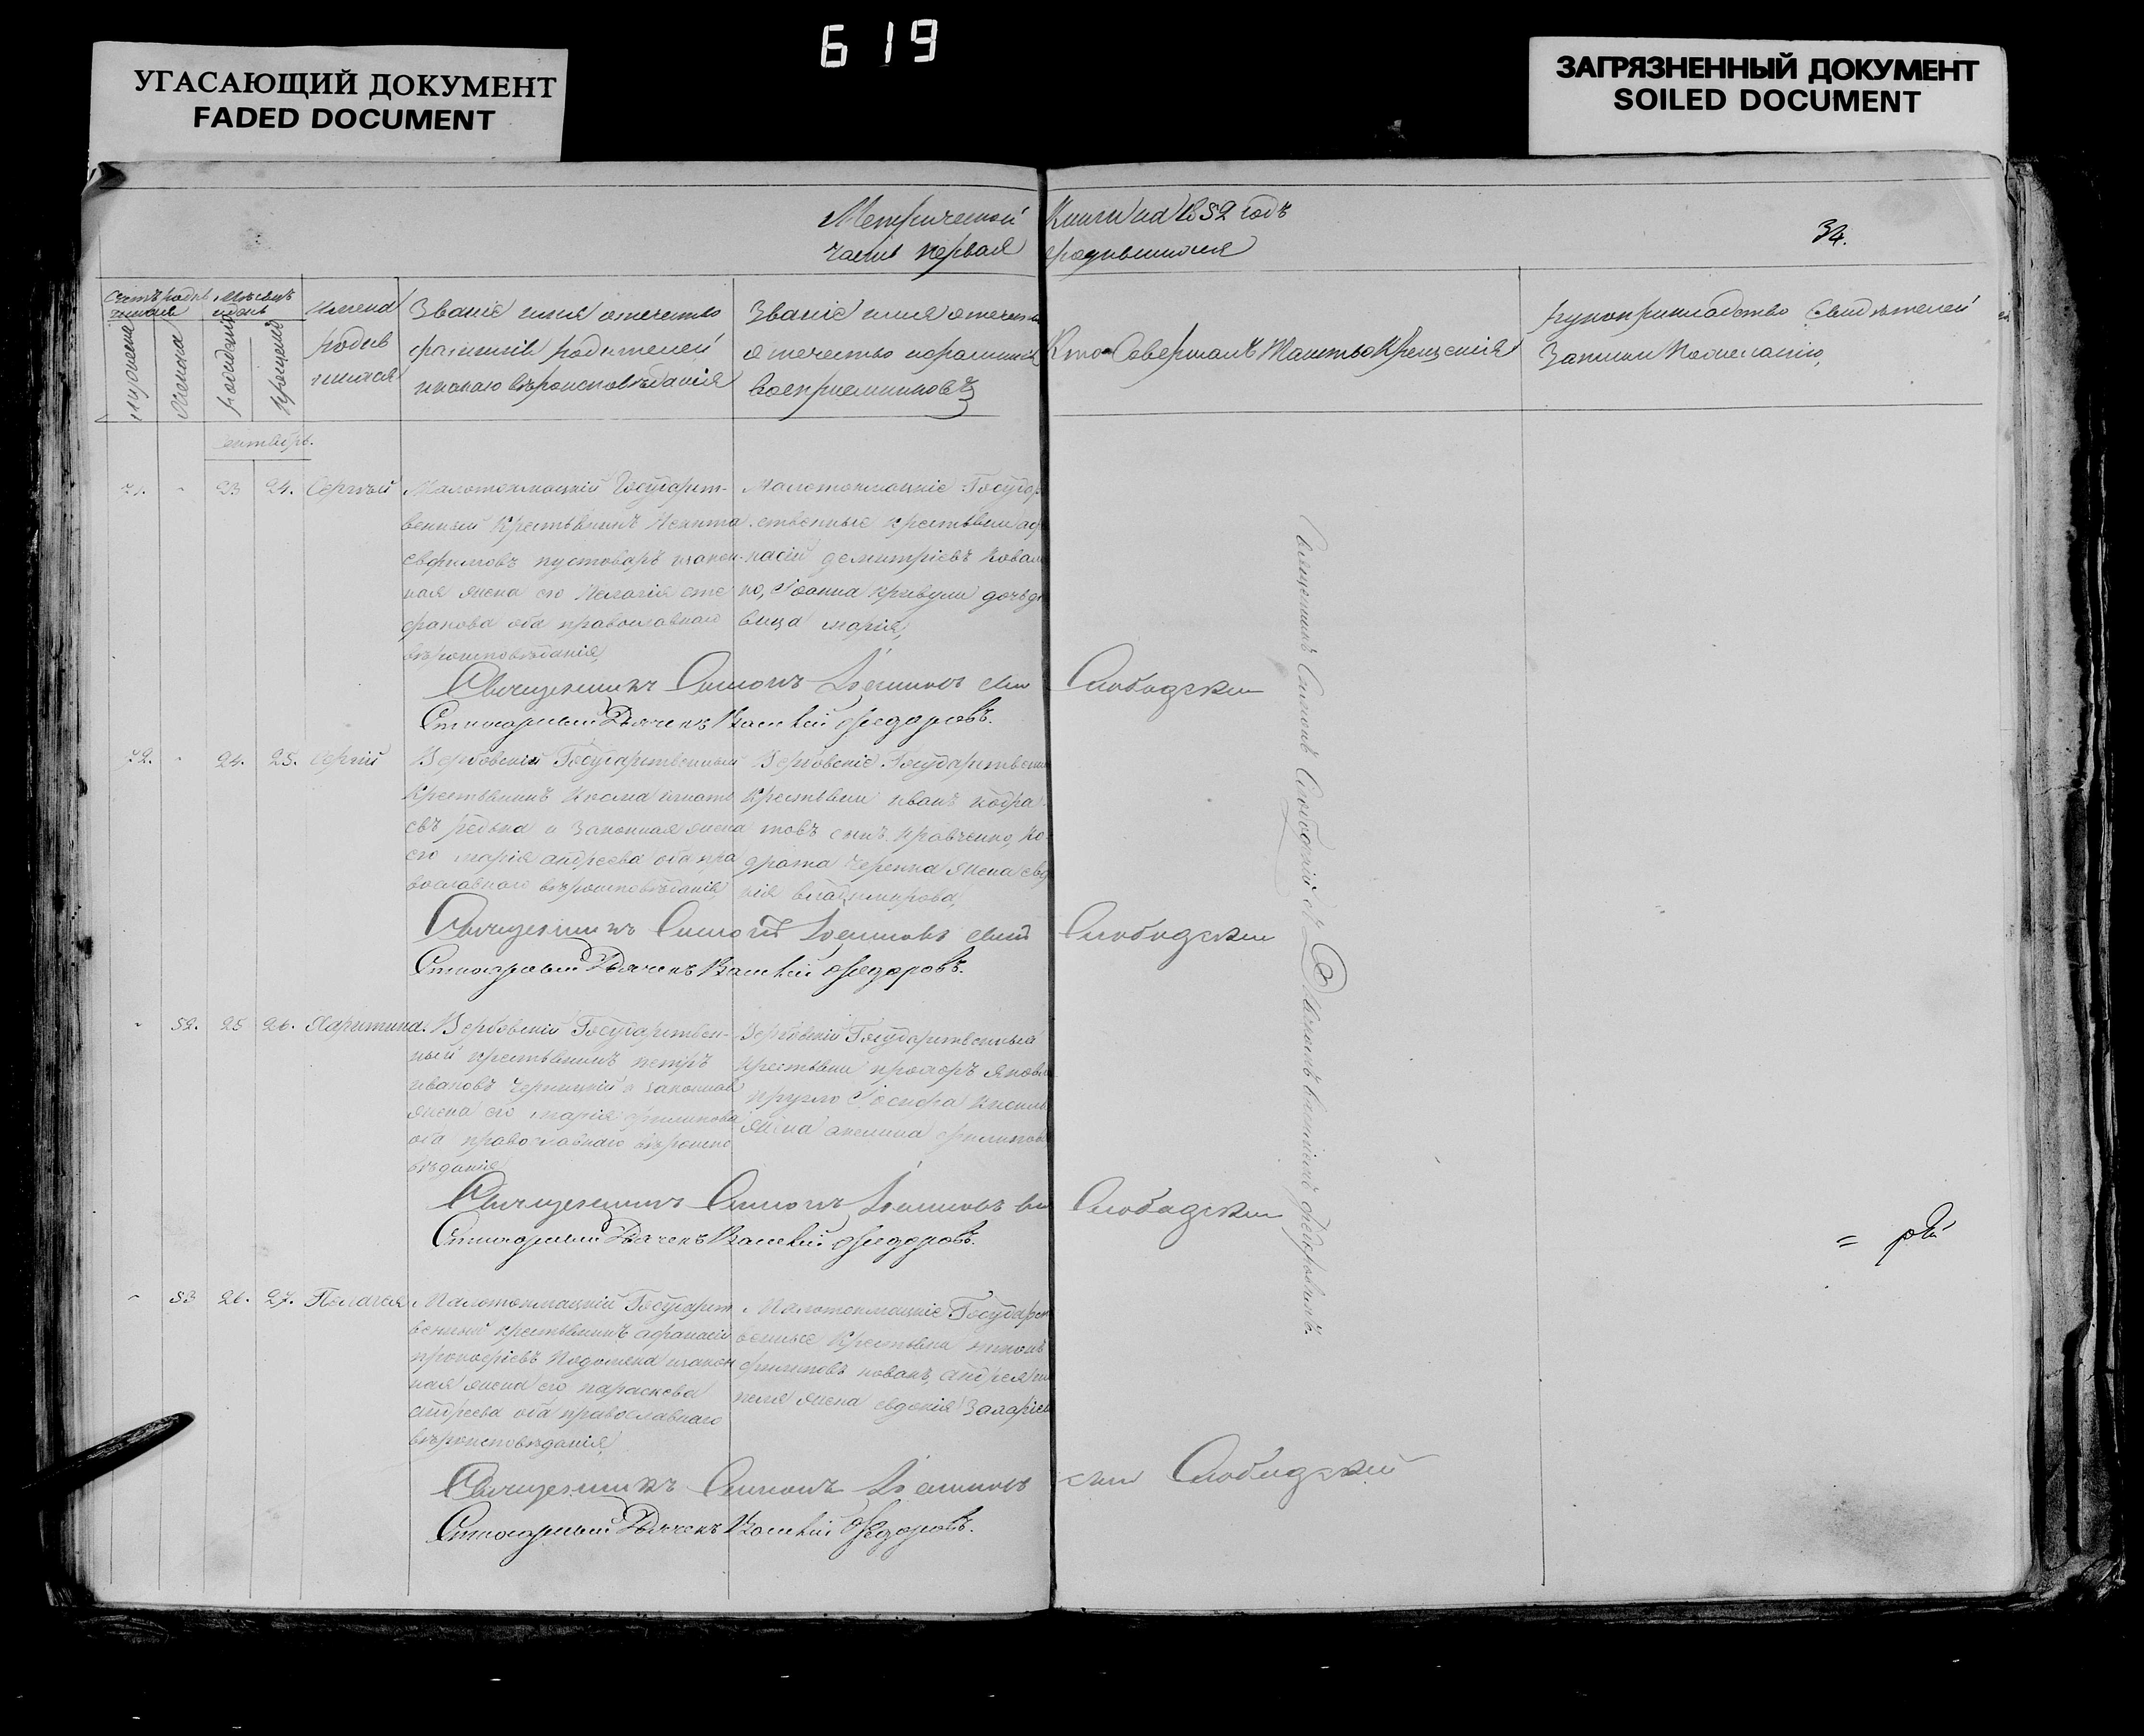 6 19
УГАСАЮЩИЙ ДОКУМЕНТ
FADED DOCUMENT
ЗАГРЯЗНЕННЫЙ ДОКУМЕНТ
SOILED DOCUMENT
Метрической Книги на 1852 годъ
часть первая родившихся
34.
Имена
родив
шихся
Званіе имя отечество
фамилія родителей
и какаго вѣроисповѣданія
Званіе имя отечест
отечество и фамилія
восприемниковъ
Кто Совершалъ Таинство Крещенія
рукоприкладство Свидѣтелей
Записи По желанію,
мужеска
женска
рожденія
крещенія
сентябрь.
71. - 23 24. Сергѣй
Малотокмацкій Государст-
венный Крестьянинъ
Евфимовъ пустоваръ и закон-
ная жена его Пелагія сте
фанова оба православнаго
вѣроисповѣданія,
Малотокмацкіе Государ
ственные крестьяни аф
насій демитріевъ Ковал
ко, Іоанна кривули дочь д
вица марія,
Священникъ Симонъ Іоанновъ Слободскій
Дьячекъ Василій Федоровъ.
72. - 24. 25. Сергій
Вербовскій Государственный
Крестьянинъ Козма игнать
евъ редька и законная жена
его марія андреева оба пра
вославнаго вѣроисповѣданія,
Вербовскіе Государствен
Крестьяни иванъ кодра
товъ сынъ кравченко, ко
драта черепка жена евд
кія владимирова,
Священникъ Симонъ Іоанновъ Слободскій
Дьячекъ Василій Федоровъ.
- 52. 25 26. Харитина.
Вербовскій Государствен-
ный крестьянинъ петръ
ивановъ и законная
жена его марія филипова
оба православнаго вѣроиспо
вѣданія
Вербовскіи Государственныя
крестьяни прохоръ яковл
кругло Іосифа
жена акелина филипов
Священникъ Симонъ Іоанновъ Слободскій
Дьячекъ Василій Федоровъ.
- 53 26. 27. Пелагея
Малотокмацкій Государст
венный крестьянинъ афанасій
прокофіевъ и закон
ная жена его параскева
андреева оба православнаго
вѣроисповѣданія,
Малотокмацкіе Государст
венные Крестьяни
филиповъ ковалъ, андрея
жена евдокія Захаріев
Священникъ Симонъ Іоанновъ Слободскій
Дьячекъ Василій Федоровъ.
Священникъ Симонъ Слободскій съ Дьячкомъ Василіемъ Федоровымъ.